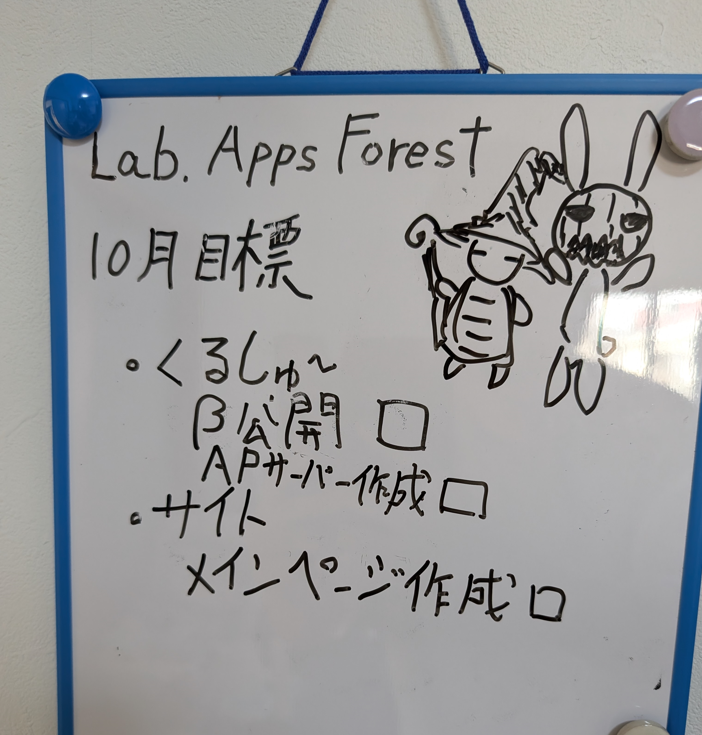 Lab. Apps Forest
10月目標
・くるしゅ~
β公開 □
APサーバー作成 □
・サイト
メインページ作成 □